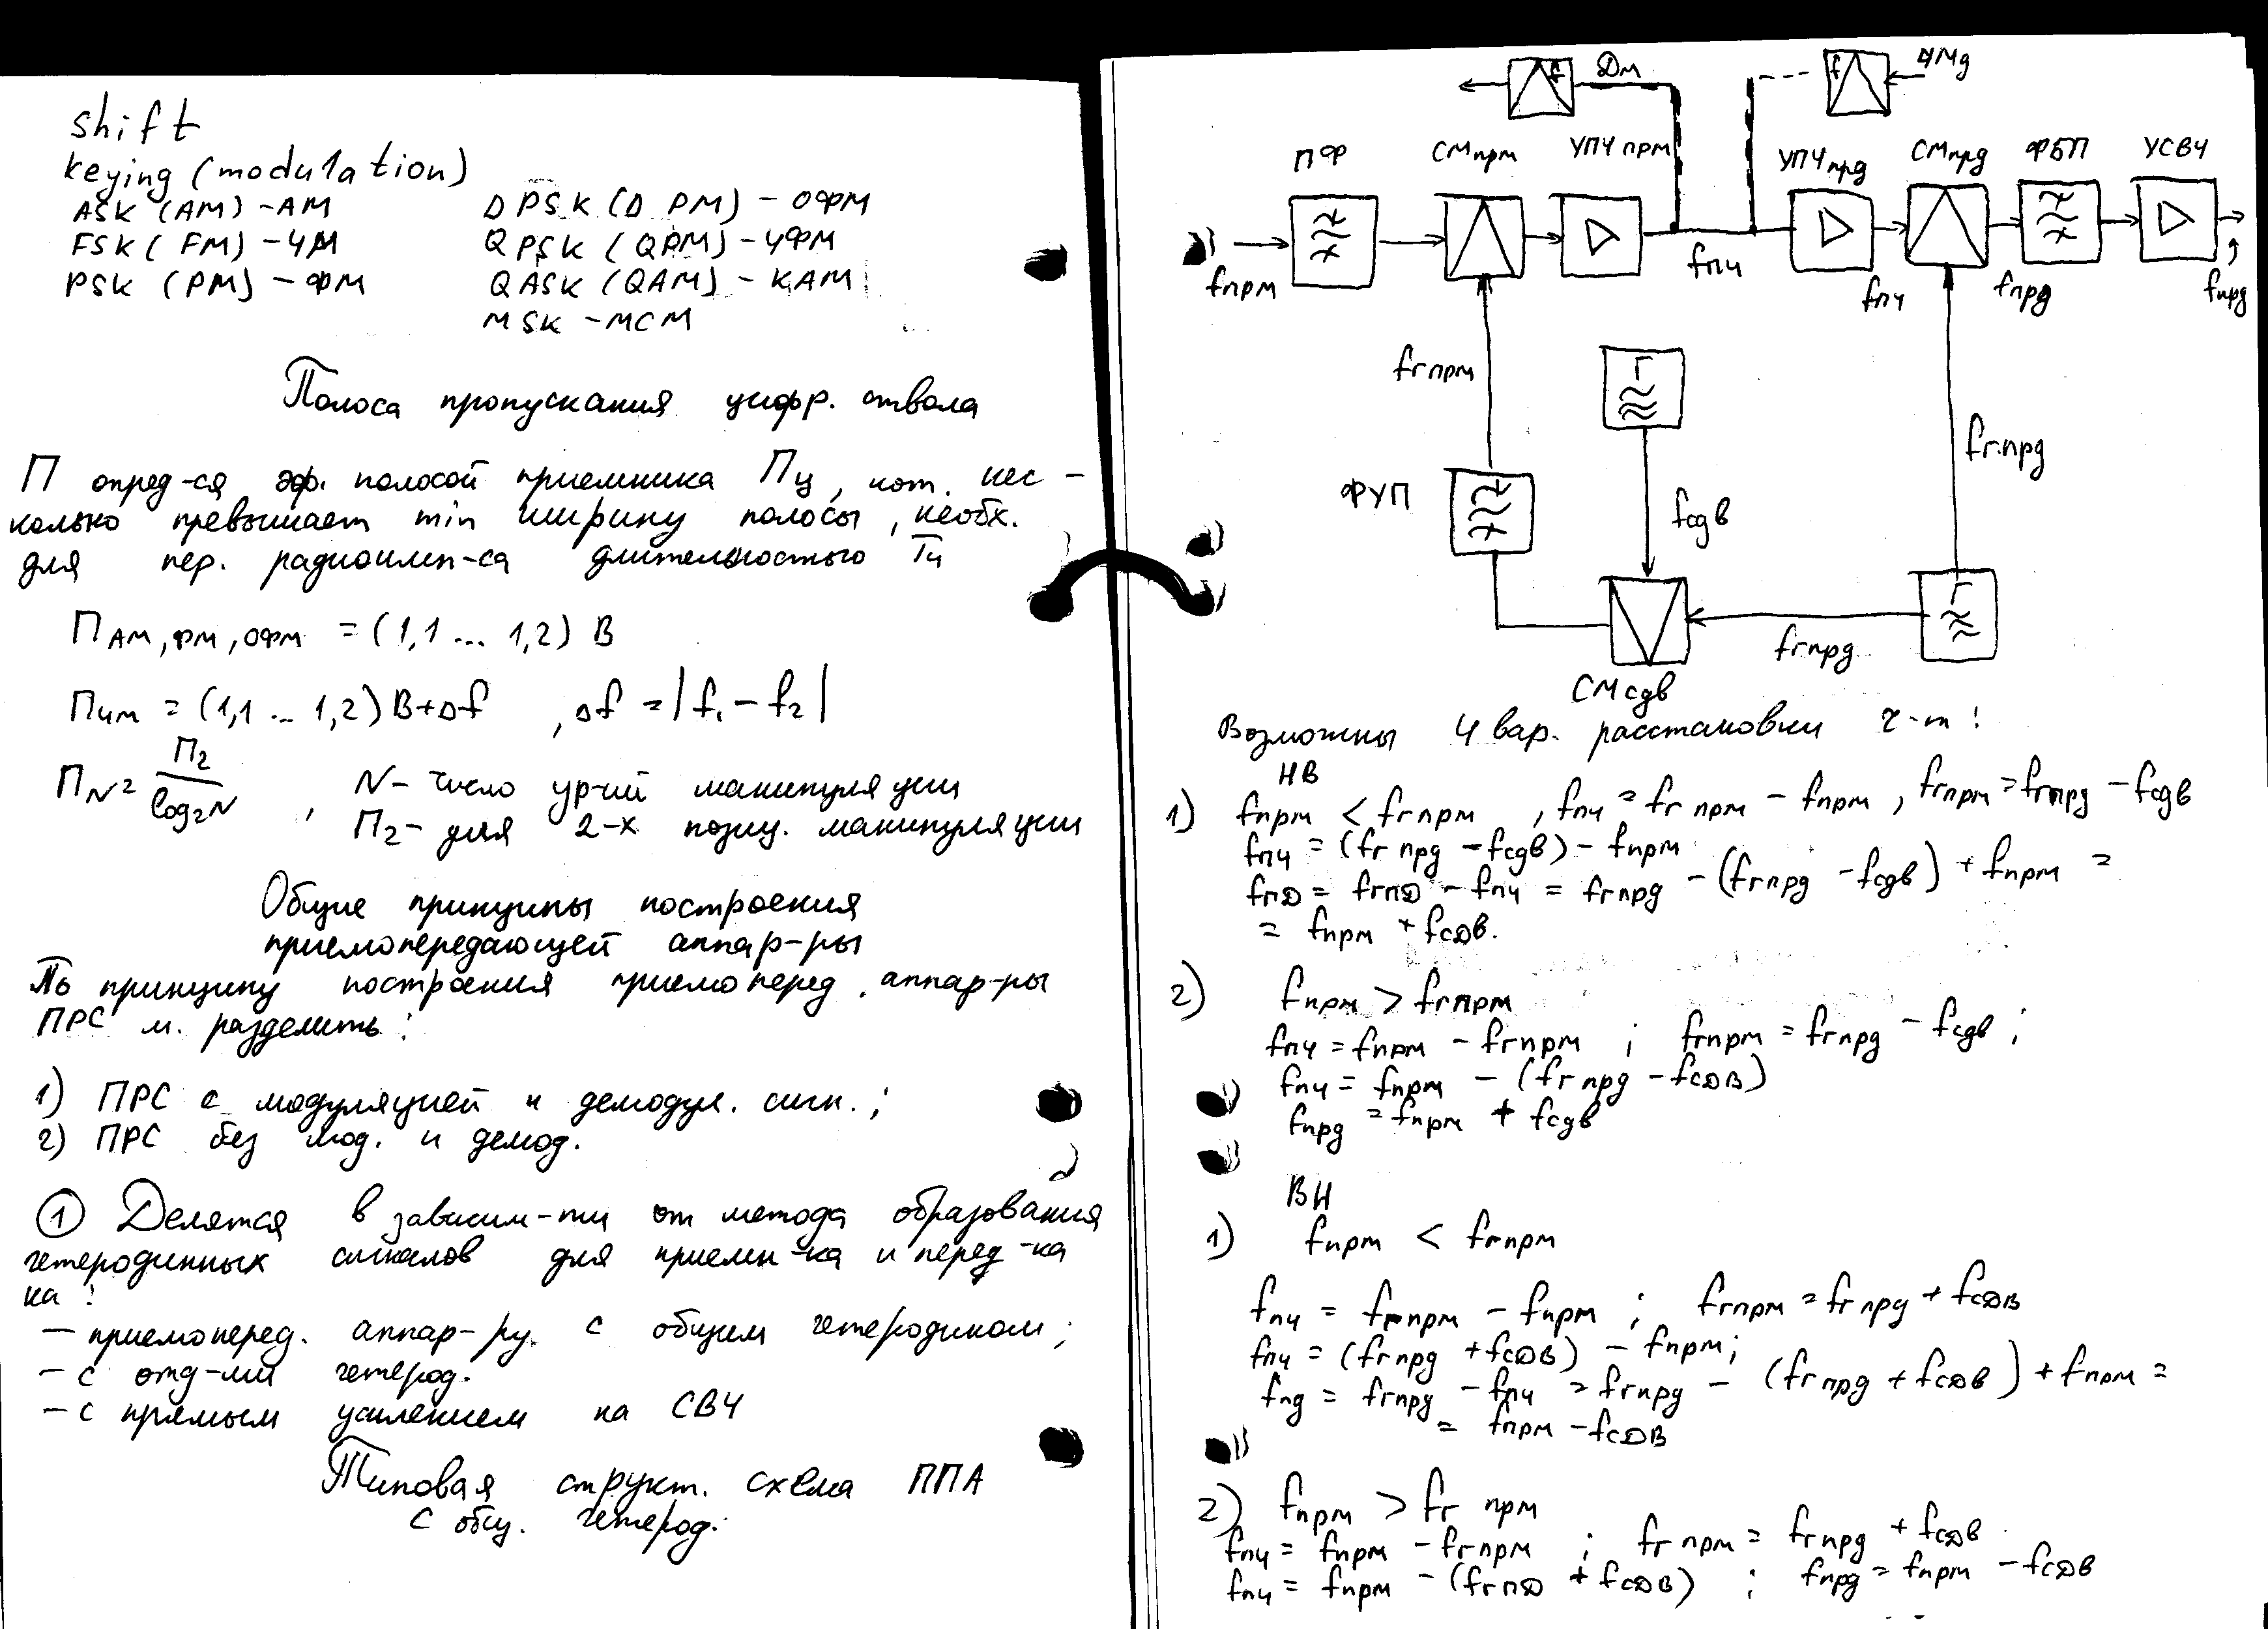 shift
keying (modulation)
ASK (AM) - АМ
FSK (FM) - ЧМ
PSK (PM) - ФМ
DPSK (DPM) - ОФМ
QPSK (QPM) - ЧФМ
QASK (QAM) - КАМ
MSK - МСМ
Полоса пропускания цифр. ствола
П опред-ся эф. полосой приемника Пц, кот. нес-
колько превышает min ширину полосы, необх.
для пер. радиоимп-са длительностью Tи
П АМ, ФМ, ОФМ = (1,1 ... 1,2) B
Пчм = (1,1 ... 1,2) B+Δf , Δf = |f₁ - f₂|
П_N = П₂ / Log₂N , N - число ур-ий манипуляции
П₂ - для 2-х позиц. манипуляции
Общие принципы построения
приемопередающей аппар-ры
По принципу построения приемоперед. аппар-ры
ПРС м. разделить:
1) ПРС с модуляцией и демодул. сигн. ;
2) ПРС без мод. и демод.
① Делятся в зависим-ти от метода образования
гетеродинных сигналов для приемн-ка и перед-ка
ка:
— приемоперед. аппар-ру. с общим гетеродином;
— с отд-ми гетерод.
— с прямым усилением на СВЧ
Типовая структ. схема ППА
с общ. гетерод.
f Дм
f ЧМд
ПФ СМпрм УПЧ прм УПЧпрд СМпрд ФБП УСВЧ
fпрм fпч fпч fпрд fпрд
fгпрм Г fгпрд
ФУП fсдв
Г
fгпрд
СМсдв
Возможны 4 вар. расстановки ч-т:
НВ
1) fпрм < fгпрм , fпч = fг прм - fпрм , fгпрм = fгпрд - fсдв
fпч = (fг прд - fсдв) - fпрм
fпд = fгпд - fпч = fгпрд - (fгпрд - fсдв) + fпрм =
= fпрм + fсдв.
2) fпрм > fгпрм
fпч = fпрм - fгпрм ; fгпрм = fгпрд - fсдв ;
fпч = fпрм - (fг прд - fсдв)
fпрд = fпрм + fсдв
ВН
1) fпрм < fгпрм
fпч = fгпрм - fпрм ; fгпрм = fг прд + fсдв
fпч = (fгпрд + fсдв) - fпрм;
fпд = fгпрд - fпч = fгпрд - (fгпрд + fсдв) + fпрм =
= fпрм - fсдв
2) fпрм > fг прм
fпч = fпрм - fгпрм ; fг прм = fгпрд + fсдв
fпч = fпрм - (fгпд + fсдв) ; fпрд = fпрм - fсдв